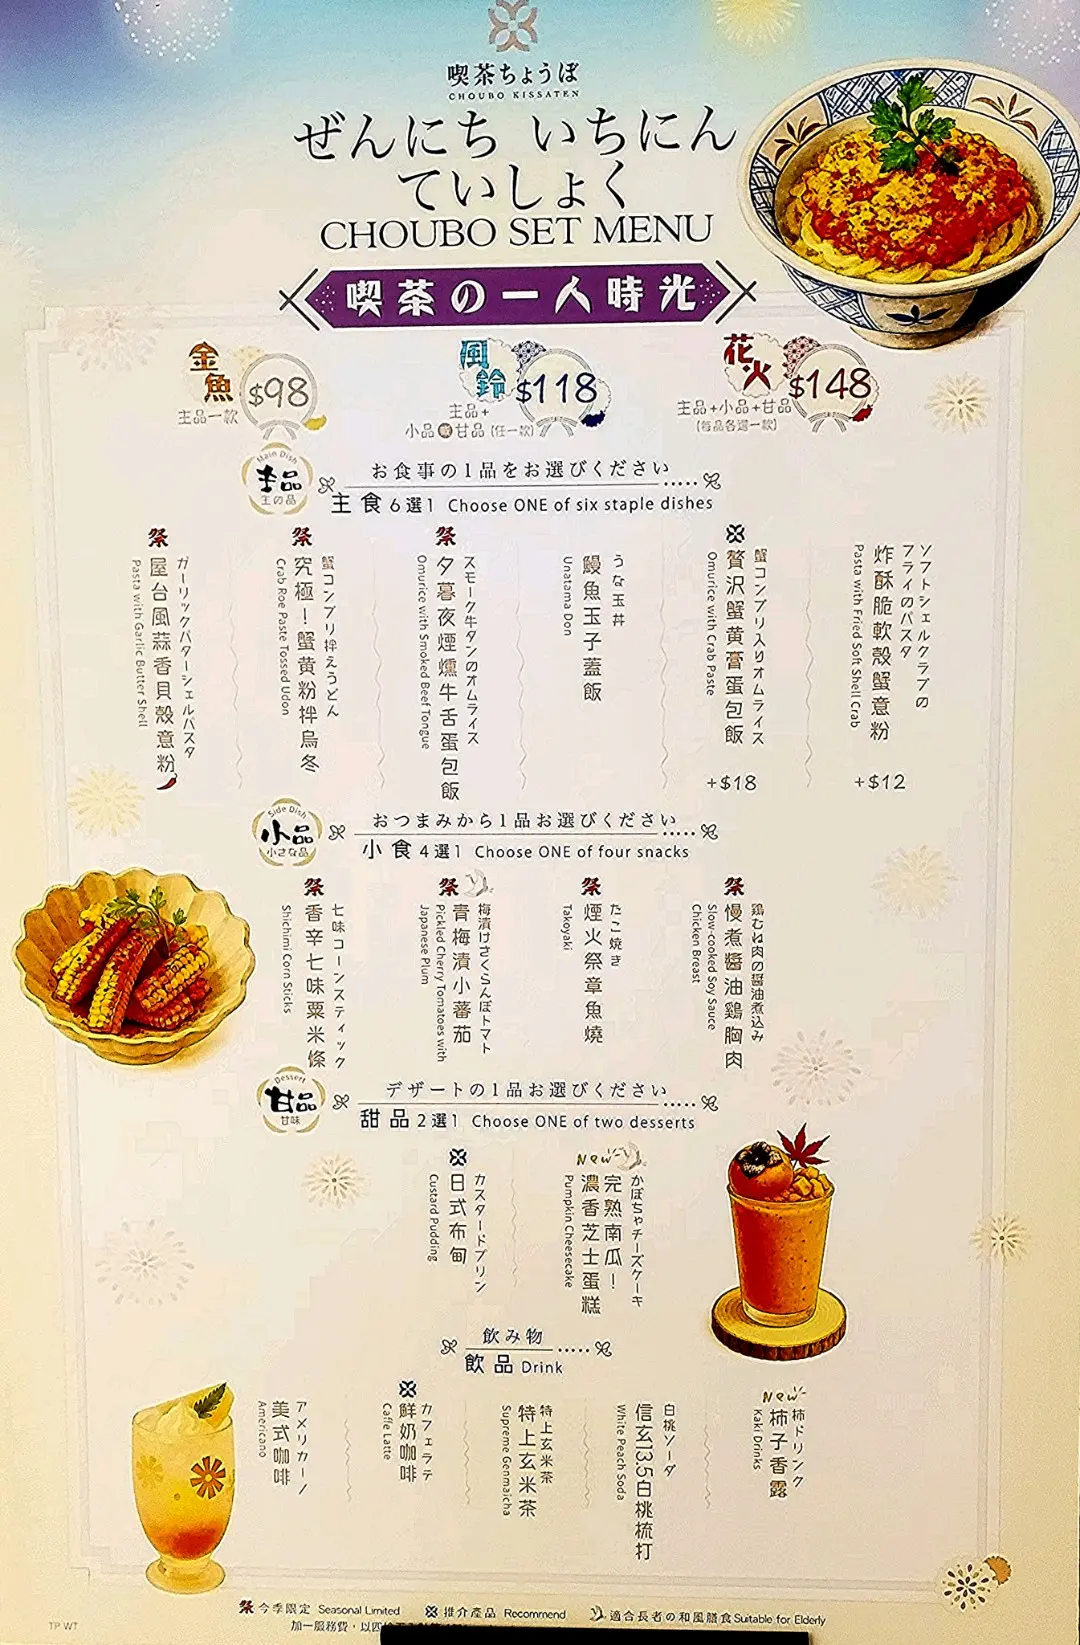 喫茶ちょうぼ
CHOUBO KISSATEN
ぜんにち いちにん
ていしょく
CHOUBO SET MENU
喫茶の一人時光
金魚
$98
主品一款
風鈴
$118
主品+
小品 或 甘品 (任一款)
花火
$148
主品+小品+甘品
(每品各選一款)
Main Dish
主品
主の品
お食事の1品をお選びください
主食6選1 Choose ONE of six staple dishes
祭
ガーリックバターシェルパスタ
屋台風蒜香貝殼意粉
Pasta with Garlic Butter Shell
祭
蟹コンブリ拌えうどん
究極!蟹黄粉拌烏冬
Crab Roe Paste Tossed Udon
祭
スモーク牛タンのオムライス
夕暮夜煙燻牛舌蛋包飯
Omurice with Smoked Beef Tongue
うな玉丼
鰻魚玉子蓋飯
Unatama Don
蟹コンブリ入りオムライス
贅沢蟹黄膏蛋包飯
Omurice with Crab Paste
+$18
ソフトシェルクラブの
フライのパスタ
炸酥脆軟殼蟹意粉
Pasta with Fried Soft Shell Crab
+$12
Side Dish
小品
小さな品
おつまみから1品お選びください
小食4選1 Choose ONE of four snacks
祭
七味コーンスティック
香辛七味粟米條
Shichimi Corn Sticks
祭
梅漬けさくらんぼトマト
青梅漬小蕃茄
Pickled Cherry Tomatoes with
Japanese Plum
祭
たこ焼き
煙火祭章魚燒
Takoyaki
祭
鶏むね肉の醤油煮込み
慢煮醬油鷄胸肉
Slow-cooked Soy Sauce
Chicken Breast
Dessert
甘品
甘味
デザートの1品お選びください
甜品2選1 Choose ONE of two desserts
カスタードプリン
日式布甸
Custard Pudding
New
かぼちゃチーズケーキ
完熟南瓜!
濃香芝士蛋糕
Pumpkin Cheesecake
飲み物
飲品 Drink
アメリカーノ
美式咖啡
Americano
カフェラテ
鮮奶咖啡
Caffe Latte
特上玄米茶
特上玄米茶
Supreme Genmaicha
白桃ソーダ
信玄13.5白桃梳打
White Peach Soda
New
柿ドリンク
柿子香露
Kaki Drinks
祭 今季限定 Seasonal Limited 推介產品 Recommend 適合長者の和風膳食 Suitable for Elderly
加一服務費,以
TP WT